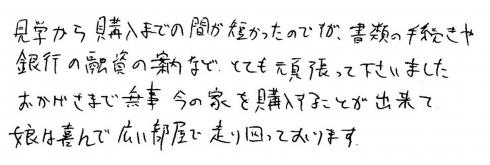 見学から購入までの間が短かったのですが、書類の手続きや
銀行の融資の案など、とても頑張って下さいました
おかげさまで無事 今の家を購入することが出来て
娘は喜んで広い部屋で走り回っております。